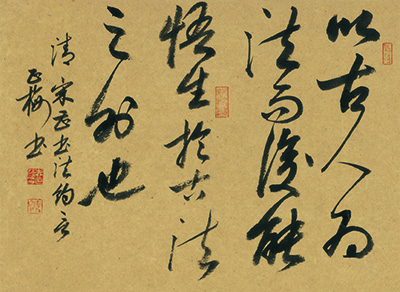 以古人為
法而後能
悟生於古法
之外也
清 宋曹書法約言
正梅書